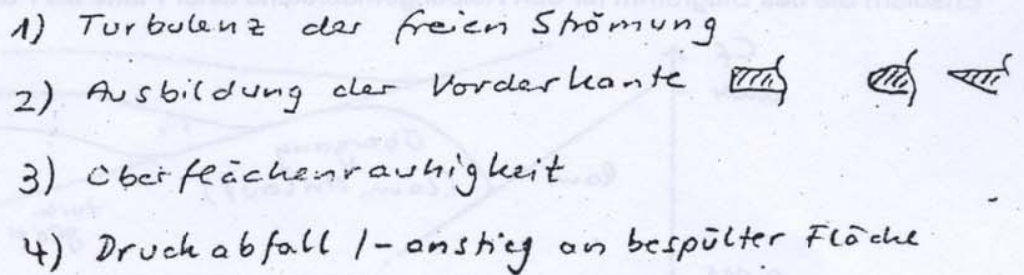 1) Turbulenz der freien Strömung
2) Ausbildung der Vorderkante
3) Oberflächenrauhigkeit
4) Druckabfall /-anstieg an bespülter Fläche